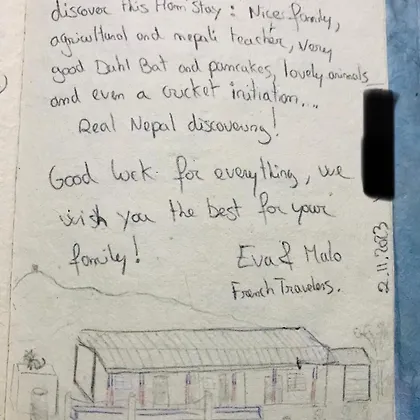 discover this Hom Stay : Nice family,
agricultural and nepali teacher, very
good Dahl Bat and pancakes, lovely animals
and even a cricket initiation...
Real Nepal discovering!
Good luck for everything, we
wish you the best for your
family!
Eva & Malo
French Travelers.
2.11.2023